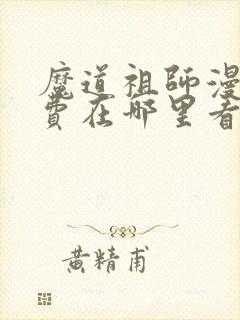 魔道祖師漫
費在哪里看
黄精甫